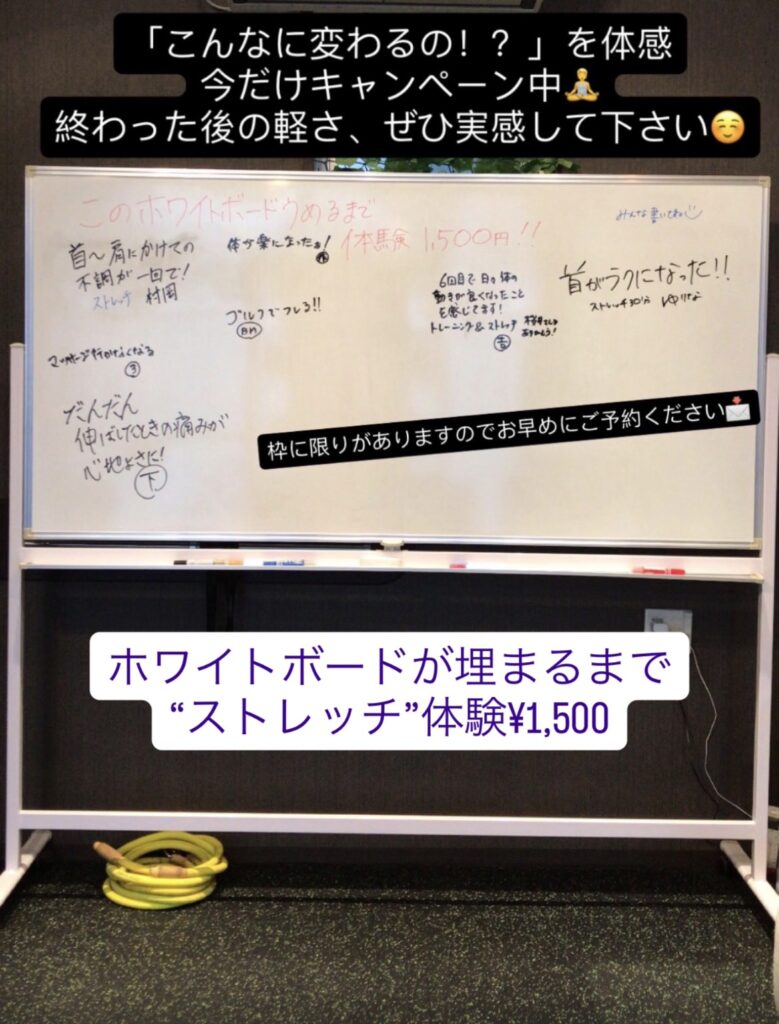 「こんなに変わるの!?」を体感
今だけキャンペーン中🧘
終わった後の軽さ、ぜひ実感して下さい☺️
このホワイトボードうめるまで
体験 1,500円!!
みんな書いてね
首〜肩にかけての
不調が一回で!
ストレッチ 村岡
体が楽になったぁ!
ゴルフでフレる!!
マッサージ行かなくなる
だんだん
伸ばしたときの痛みが
心地よさに!
下
6回目で日々体の
動きが良くなったこと
を感じてます!
トレーニング&ストレッチ
ありがとう!
首がラクになった!!
ストレッチ30分 ゆりな
枠に限りがありますのでお早めにご予約ください📩
ホワイトボードが埋まるまで
“ストレッチ”体験¥1,500